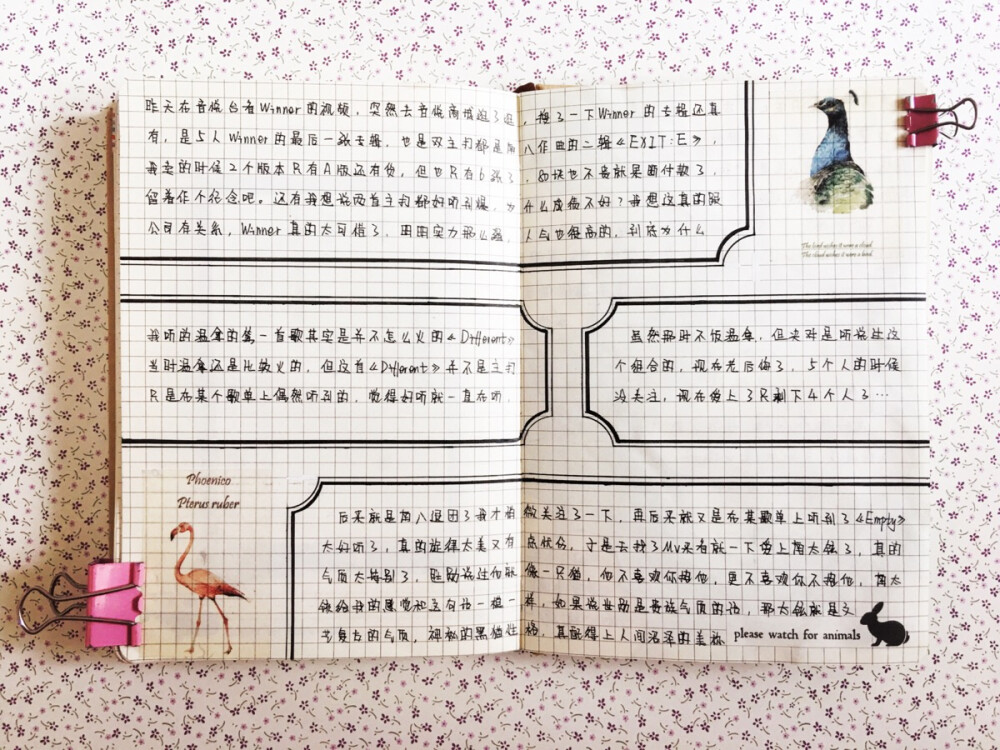 昨天在音悦台看Winner的视频，突然去音悦商城逛了逛，搜了一下Winner的专辑还真
有，是5人Winner的最后一张专辑，也是双主打都是南八作曲的二辑《EXIT:E》，
我买的时候2个版本只有A版还有货，但也只有6张了，块也不贵就付款了，
留着作个纪念吧。还有我想说两首主打都好听到爆，为什么成绩不好？我想这真的跟
公司有关系，Winner真的太可惜了，团的实力那么强，人气也很高的，到底为什么
The bird wishes it were a cloud
The cloud wishes it were a bird
我听的温拿的第一首歌其实是并不怎么火的《Different》
当时温拿还是比较火的，但这首《Different》并不是主打
只是在某个歌单上偶然听到的，觉得好听就一直在听。
虽然那时不饭温拿，但绝对是听说过这
个组合的，现在老后悔了，5个人的时候
没关注，现在爱上了只剩下4个人了…
Phoenico
Pterus ruber
后来就是南八退团了我才稍微关注了一下，再后来就又是在某歌单上听到了《Empty》
太好听了，真的旋律太美又有点忧伤，于是去找了MV来看就一下爱上南太铉了，真的
气质太特别了，胜勋说过他就像一只猫，你不喜欢他，更不喜欢你不，南太
铉给我的感觉和这句话一模一样，如果说是贵族气质的话，那太铉就是
的气质，神秘的黑猫性格，真配得上人间沼泽的美称
please watch for animals